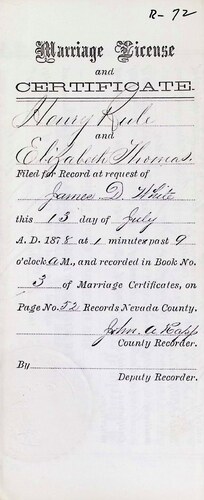 R-72
Marriage License
and
CERTIFICATE.
Henry Rule
and
Elizabeth Thomas.
Filed for Record at request of
James D. White
this 15 day of July
A. D. 1878 at 1 minutes past 9
o'clock A M., and recorded in Book No.
3 of Marriage Certificates, on
Page No. 52 Records Nevada County.
John. A Rapp
County Recorder.
By
Deputy Recorder.